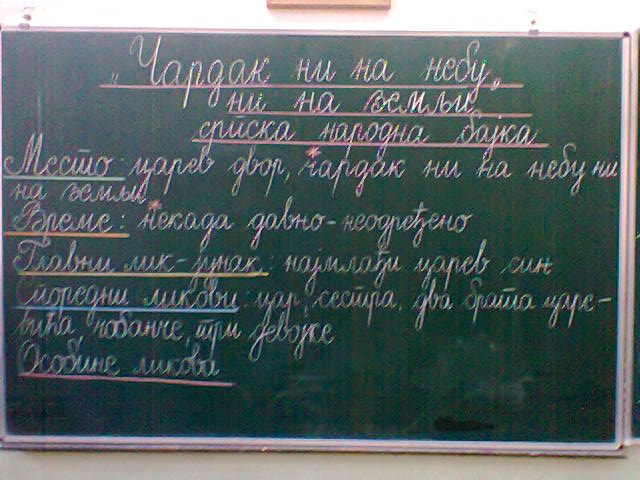 „Чардак ни на небу
ни на земљи"
српска народна бајка
Место: царев двор, чардак ни на небу ни
на земљи
Време: некада давно - неодређено
Главни лик - јунак: најмлађи царев син
Споредни ликови: цар, сестра, два брата царе-
вића чобанче, три девојке
Особине ликова